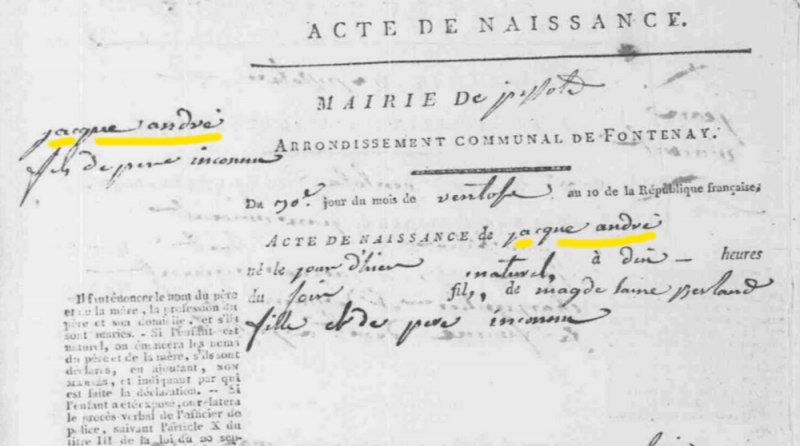 ACTE DE NAISSANCE.
MAIRIE DE pissote
ARRONDISSEMENT COMMUNAL DE FONTENAY.
jacque andré
fils de pere inconnu
Du jour du mois de ventose au 10 de la République française,
ACTE DE NAISSANCE de jacque andré
né le jour d'hier à dix — heures
du soir naturel, fils, de magdelaine Berland
fille et de pere inconnu
Il faut énoncer le nom du père
et de la mère, la profession du
père et son domicile, et s'ils
sont mariés. Si l'enfant est
naturel, on énoncera les noms
du père et de la mère, s'ils sont
déclarés, en ajoutant, NON
MARIÉS, et indiquant par qui
est faite la déclaration. — Si
l'enfant a été exposé, on relatera
le procès verbal de l'officier de
police, suivant l'article X du
titre III de la loi du 20 sep-